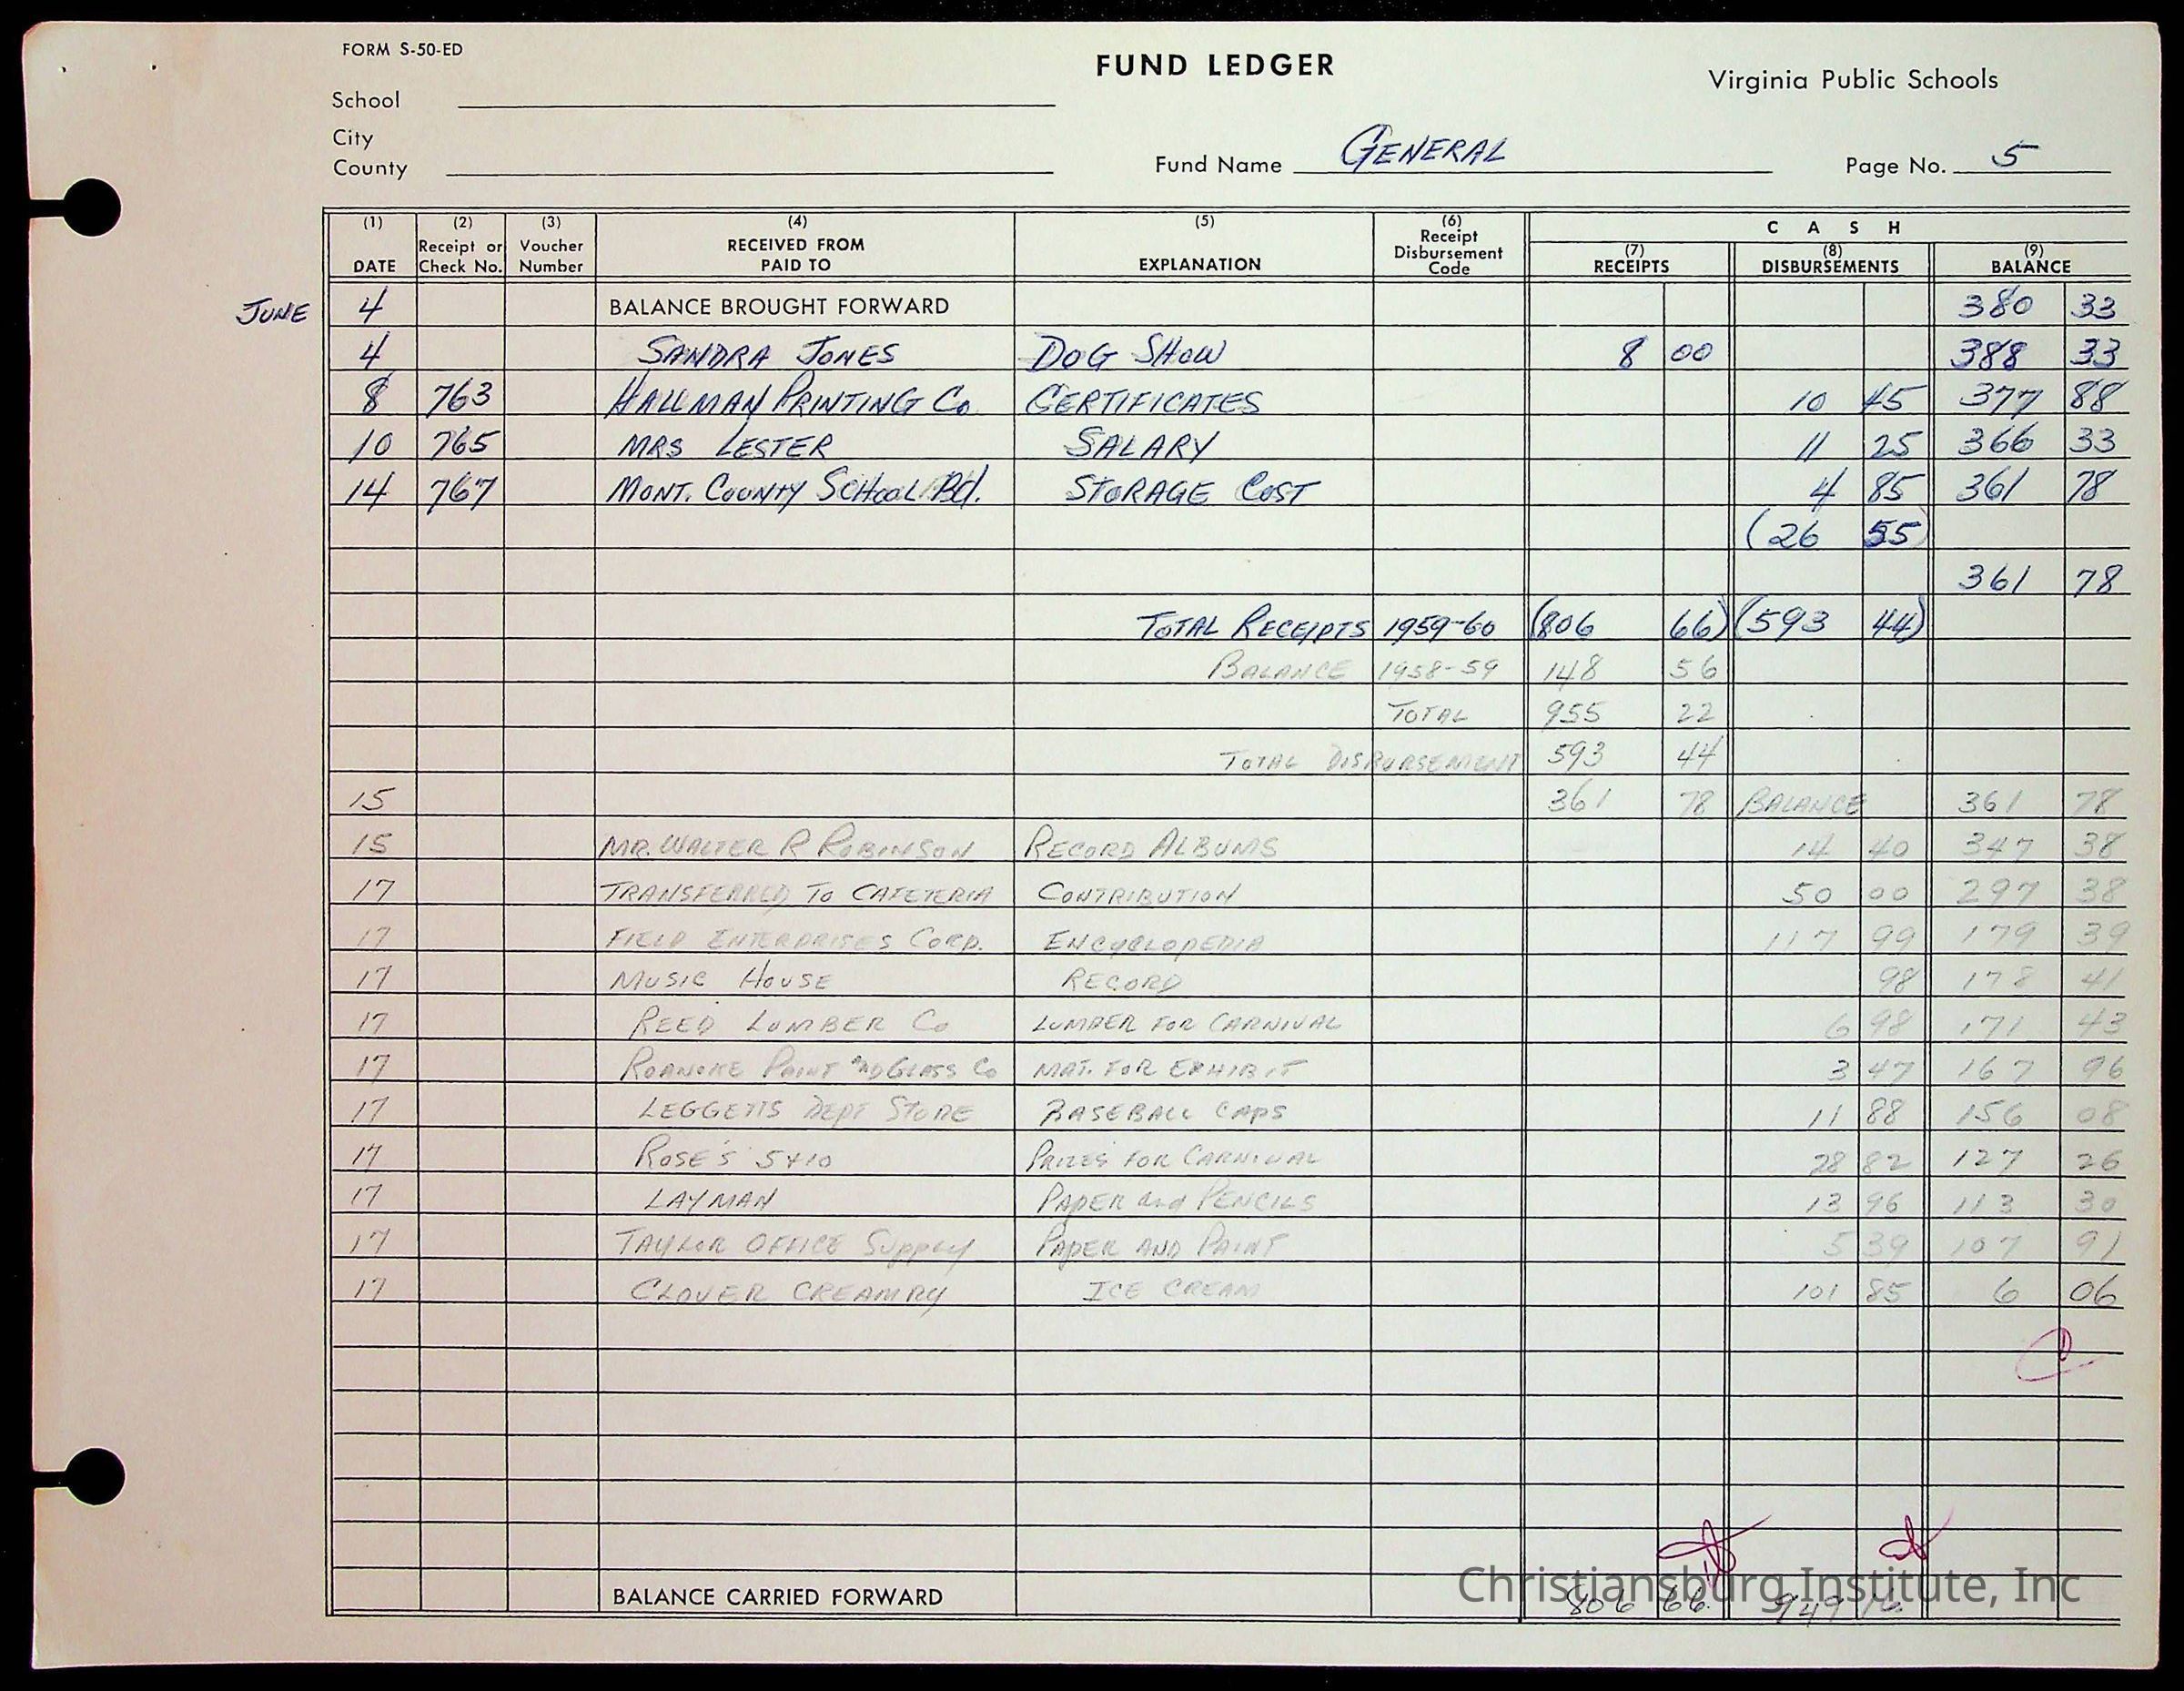 FORM S-50-ED
FUND LEDGER
Virginia Public Schools
School
City
County
Fund Name GENERAL
Page No. 5
(1) DATE (2) Receipt or Check No. (3) Voucher Number (4) RECEIVED FROM PAID TO (5) EXPLANATION (6) Receipt Disbursement Code CASH (7) RECEIPTS (8) DISBURSEMENTS (9) BALANCE
JUNE 4 BALANCE BROUGHT FORWARD 380 33
4 SANDRA JONES DOG SHOW 8 00 388 33
8 763 HALLMAN PRINTING CO. CERTIFICATES 10 45 377 88
10 765 MRS LESTER SALARY 11 25 366 33
14 767 MONT. COUNTY SCHOOL Bd. STORAGE COST 4 85 361 78
(26 55)
361 78
TOTAL RECEIPTS 1959-60 (806 66) (593 44)
BALANCE 1958-59 148 56
TOTAL 955 22
TOTAL DISBURSEMENT 593 44
15 361 78 BALANCE 361 78
15 MR. WALTER R ROBINSON RECORD ALBUMS 14 40 347 38
17 TRANSFERRED TO CAFETERIA CONTRIBUTION 50 00 297 38
17 FIELD ENTERPRISES CORP. ENCYCLOPEDIA 117 99 179 39
17 MUSIC HOUSE RECORD 98 178 41
17 REED LUMBER CO LUMBER FOR CARNIVAL 6 98 171 43
17 ROANOKE PAINT AND GLASS CO MAT. FOR EXHIBIT 3 47 167 96
17 LEGGETTS DEPT STORE BASEBALL CAPS 11 88 156 08
17 ROSE'S 5+10 PRIZES FOR CARNIVAL 28 82 127 26
17 LAYMAN PAPER and PENCILS 13 96 113 30
17 TAYLOR OFFICE SUPPLY PAPER AND PAINT 5 39 107 91
17 CLOVER CREAMRY ICE CREAM 101 85 6 06
BALANCE CARRIED FORWARD 806 66. 949 16.
Christiansburg Institute, Inc